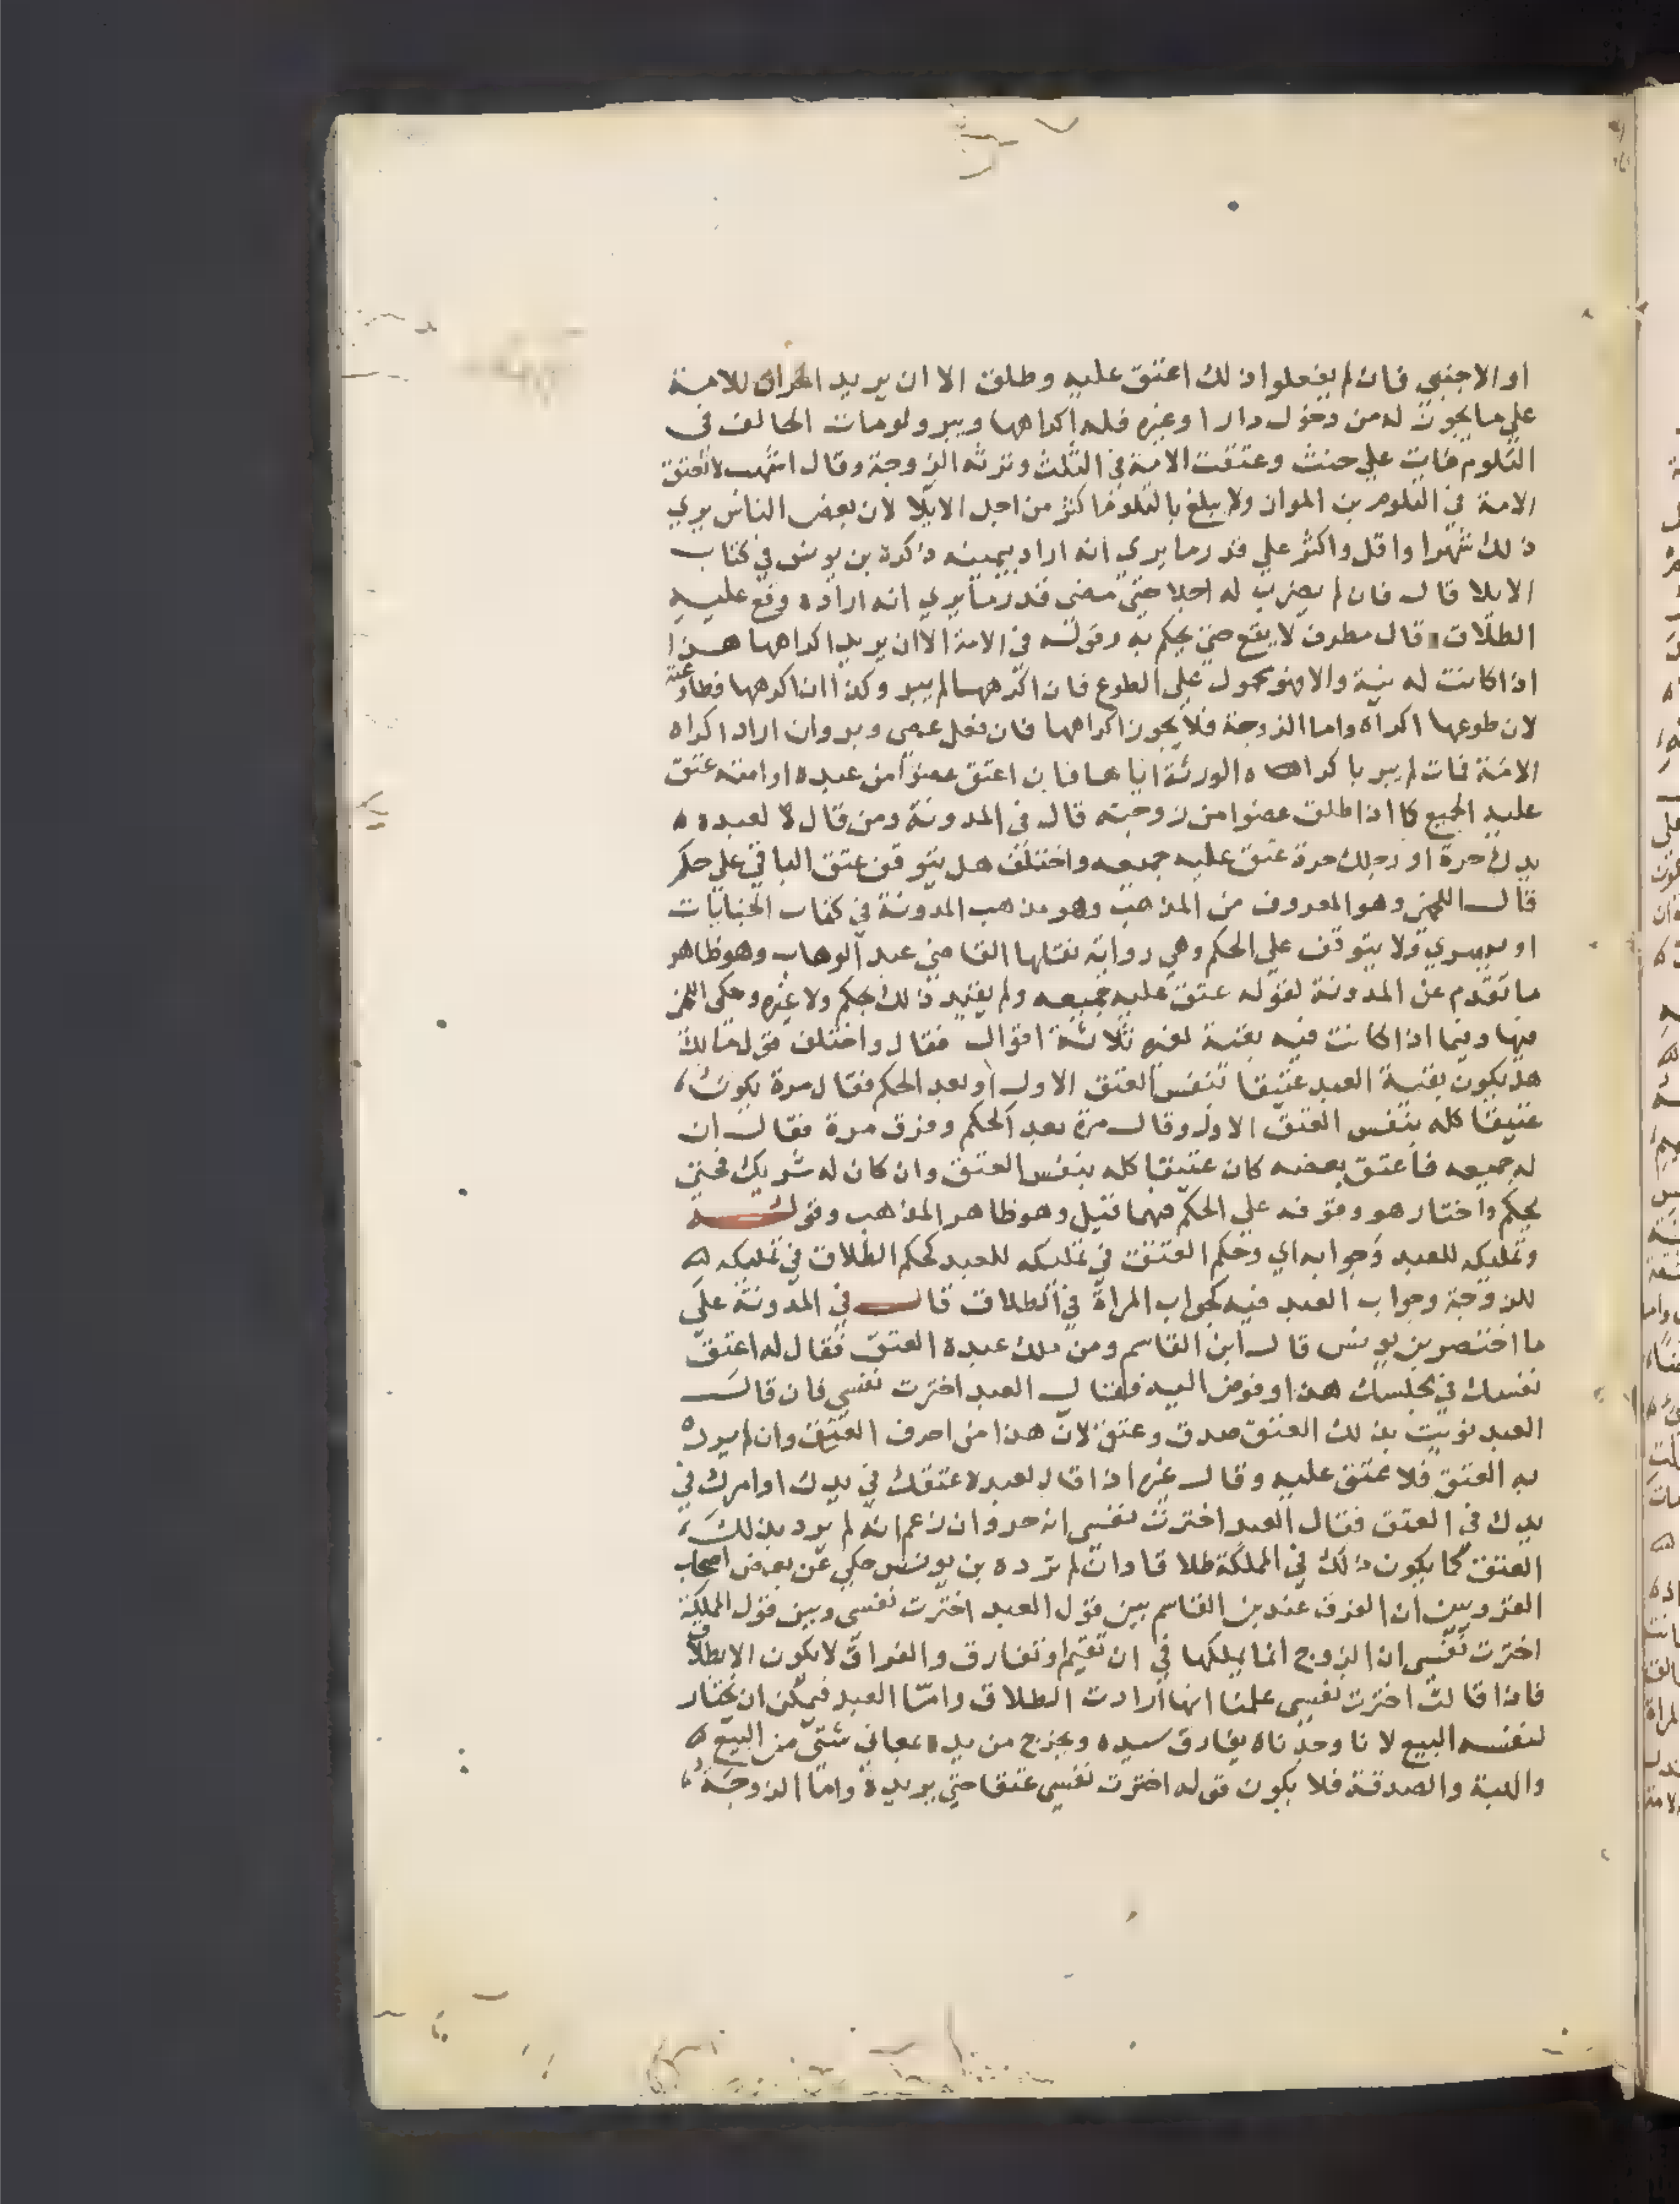 او الاجنبي فان لم يفعلوا ذلك اعتق عليه وطلق الا ان يريد اكراه للامة
علي ما يجوز له من دخول دار او غيره فله اكراهها ويبر ولو مات الحالف في
التلوم مات علي حنث وعتقت الامة في الثلث وترثه الزوجة وقال اشهب لا تعتق
الامة في التلوم بن المواز ولا يبلغ بالتلوم اكثر من اجل الايلا لان بعض الناس يري
ذلك شهرا واقل واكثر علي قدر ما يري انه اراد بيمينه ذكره بن يونس في كتاب
الايلا قال فان لم يضرب له اجلا حتي مضي قدر ما يري انه اراده وقع عليه
الطلاق قال مطرف لا يقع حتي يحكم به وقوله في الامة الا ان يريد اكراهها هذا
اذا كانت له نية والا فهو محمول علي الطوع فان اكرهها لم يبر وكذا ان اكرهها فطاوعته
لان طوعها اكراه واما الزوجة فلا يجوز اكراهها فان فعل عصي وبر وان اراد اكراه
الامة فمات لم يبر باكراه الورثة اياها فان اعتق عضوا من عبده او امته عتق
عليه الجميع كما اذا طلق عضوا من زوجته قال في المدونة ومن قال لعبده
يدك حرة او رجلك حرة عتق عليه جميعه واختلف هل يتوقف عتق الباقي علي حكم
قال اللخمي وهو المعروف من المذهب وهو مذهب المدونة في كتاب الجنايات
او يسري ولا يتوقف علي الحكم وهي رواية نقلها القاضي عبد الوهاب وهو ظاهر
ما تقدم عن المدونة لقوله عتق عليه جميعه ولم يقيد ذلك بحكم ولا غيره وحكي اللخمي
فيها وفيما اذا كانت فيه بقية لغيره ثلاثة اقوال فقال واختلف قول مالك
هل يكون بقية العبد عتيقا بنفس العتق الاول او بعد الحكم فقال مرة يكون
عتيقا كله بنفس العتق الاول وقال مرة بعد الحكم وفرق مرة فقال ان
له جميعه فاعتق بعضه كان عتيقا كله بنفس العتق وان كان له شريك فحتي
يحكم واختار هو وقوفه علي الحكم فيهما قيل وهو ظاهر المذهب وقوله
وتمليكه للعبد وجوابه اي وحكم العتق في تمليكه للعبد كحكم الطلاق في تمليكه
للزوجة وجواب العبد فيه كجواب المراة في الطلاق قال في المدونة علي
ما اختصر بن يونس قال ابن القاسم ومن ملك عبده العتق فقال له اعتق
نفسك في مجلسك هذا وفوض اليه فقال العبد اخترت نفسي فان قال
العبد نويت بذلك العتق صدق وعتق لان هذا من احرف العتق وان لم يرد
به العتق فلا عتق عليه وقال غيره اذا قال لعبده عتقك في يدك او امرك في
يدك في العتق فقال العبد اخترت نفسي انه حر وان زعم انه لم يرد بذلك
العتق كما يكون ذلك في المملكة طلاقا وان لم ترده بن يونس حكي عن بعض اصحاب
القرويين ان الفرق عند بن القاسم بين قول العبد اخترت نفسي وبين قول المملكة
اخترت نفسي ان الزوج انما يملكها في ان تقيم او تفارق والفراق لا يكون الا بطلاق
فاذا قالت اخترت نفسي علمنا انها ارادت الطلاق وامّا العبد فيمكن ان يختار
لنفسه البيع لانا وجدناه يفارق سيده ويخرج من يده بمعاني شتي من البيع
والهبة والصدقة فلا يكون قوله اخترت نفسي عتقا حتي يريده وامّا الزوجة